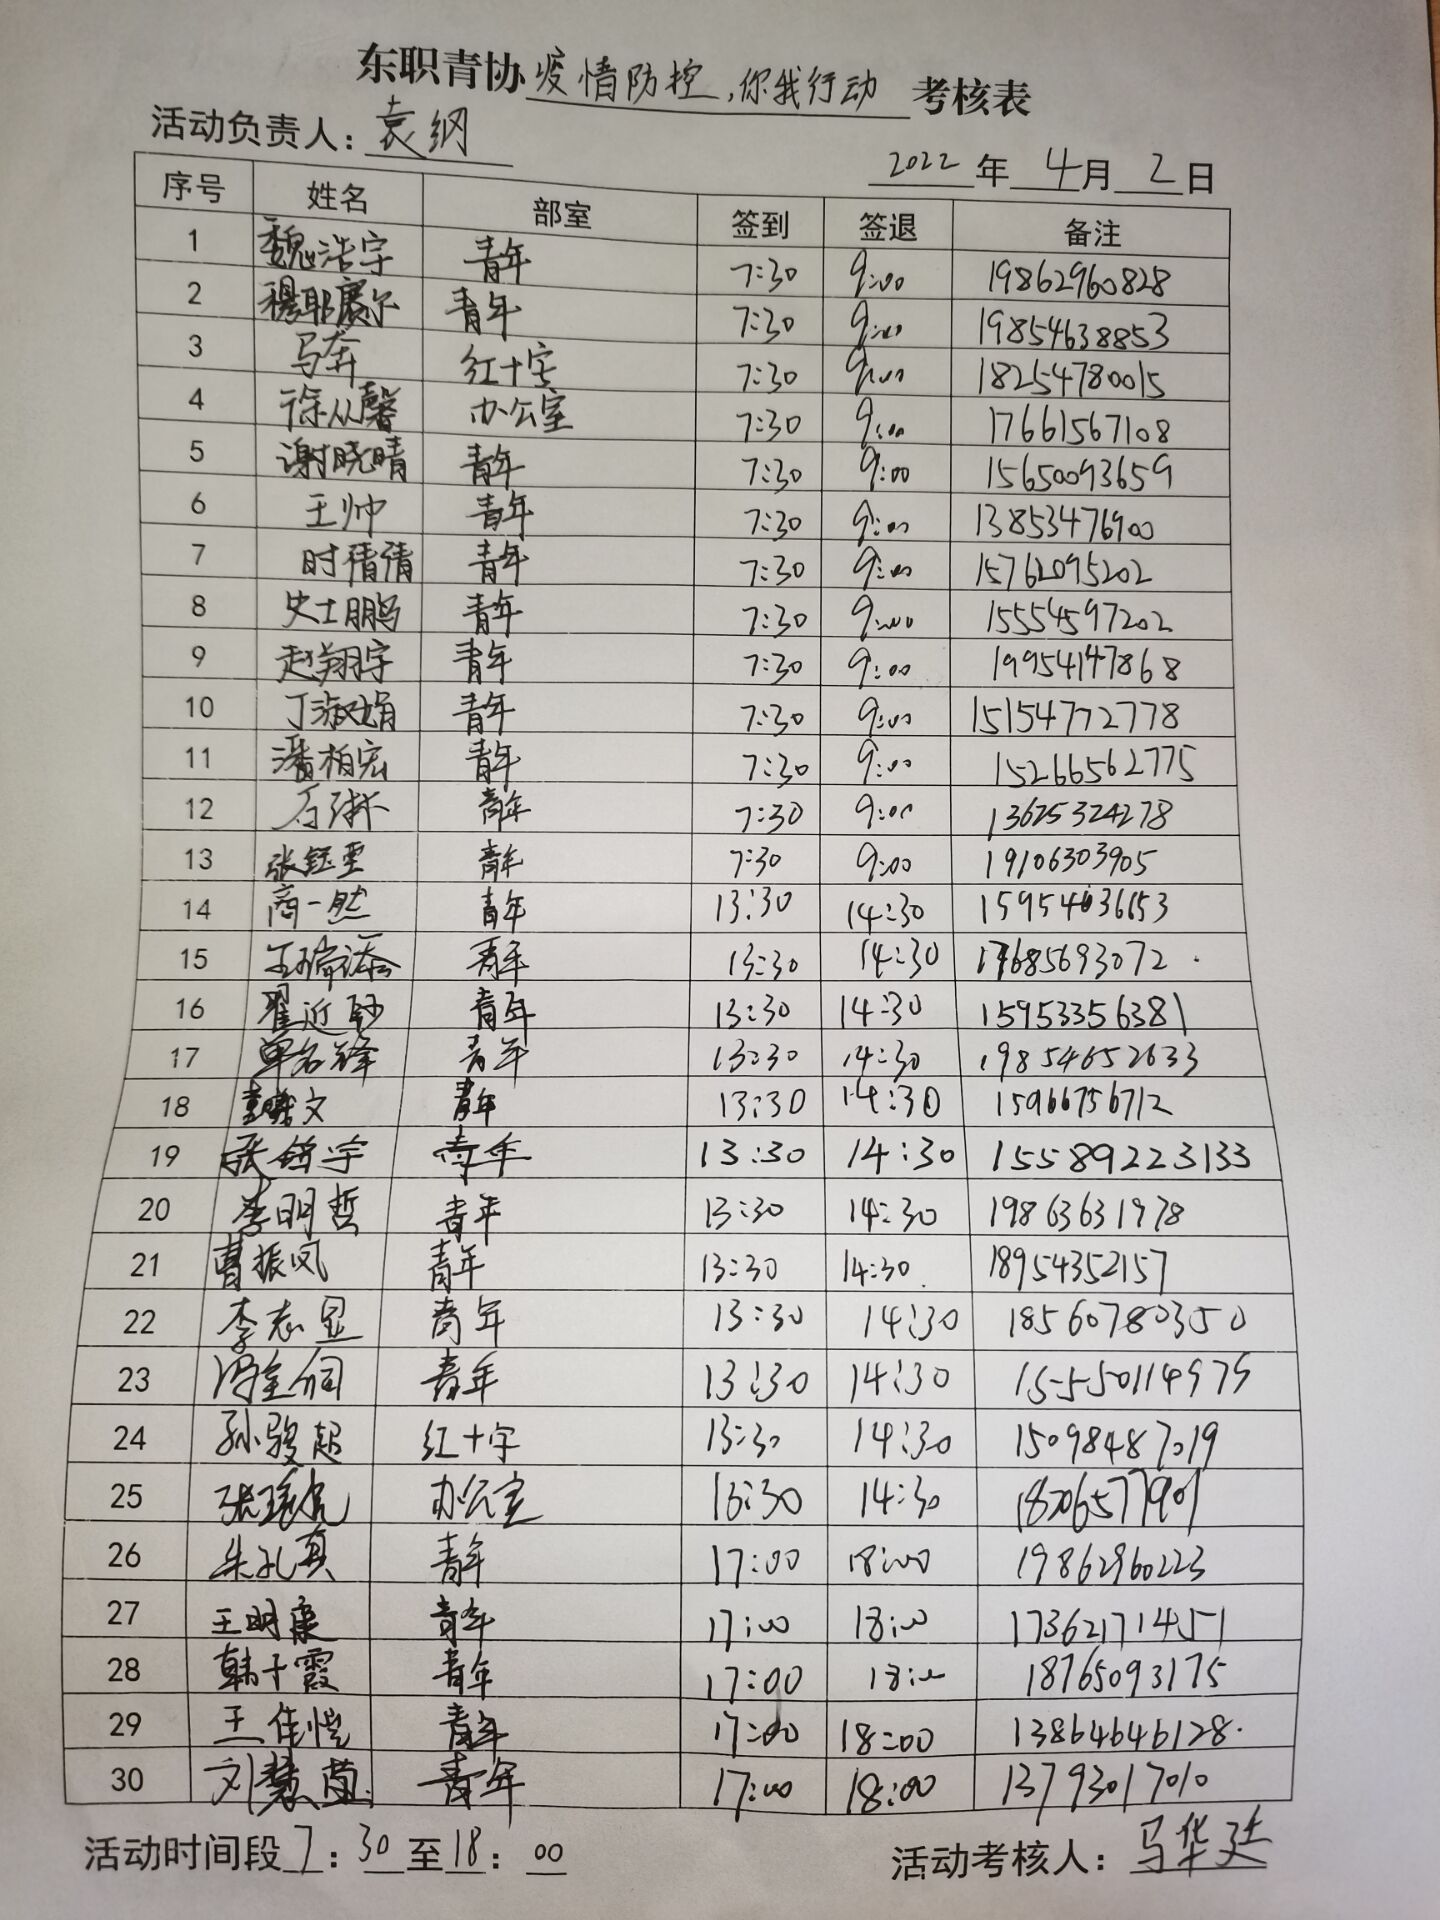 东职青协疫情防控,你我行动考核表
活动负责人:袁纲
2022年4月2日
序号 姓名 部室 签到 签退 备注
1 魏浩宇 青年 7:30 9:00 19862960828
2 穆耶赛尔 青年 7:30 9:00 19854638853
3 马奔 红十字 7:30 9:00 18254780015
4 徐从馨 办公室 7:30 9:00 17661567108
5 谢晓晴 青年 7:30 9:00 15650093659
6 王帅 青年 7:30 9:00 13853476900
7 时倩倩 青年 7:30 9:00 15762095202
8 史士鹏 青年 7:30 9:00 15554597202
9 赵翔宇 青年 7:30 9:00 19954147868
10 丁淑娟 青年 7:30 9:00 15154772778
11 潘柏宏 青年 7:30 9:00 15266562775
12 青年 7:30 9:00 13625324278
13 张钰雪 青年 7:30 9:00 19106303905
14 商一然 青年 13:30 14:30 15954036653
15 王瑞添 青年 13:30 14:30 17685693072
16 翟近 青年 13:30 14:30 15953356381
17 单名锋 青年 13:30 14:30 19854652633
18 文 青年 13:30 14:30 15966756712
19 张铭宇 青年 13:30 14:30 15589223133
20 李明哲 青年 13:30 14:30 19863631978
21 曹振凤 青年 13:30 14:30 18954352157
22 李志显 青年 13:30 14:30 18560780350
23 冯金 青年 13:30 14:30 15550114979
24 孙骏超 红十字 13:30 14:30 15098487019
25 张瑶 办公室 13:30 14:30 18706577901
26 朱孔真 青年 17:00 18:00 19862960223
27 王明康 青年 17:00 18:00 17362171451
28 韩千霞 青年 17:00 18:00 18765093175
29 王佳恺 青年 17:00 18:00 13864646128
30 刘慧茹 青年 17:00 18:00 13793017010
活动时间段7:30至18:00
活动考核人:马华廷